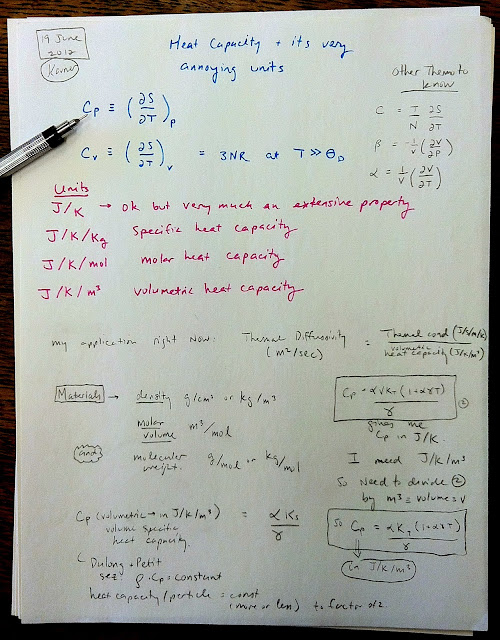 19 June
2012
Karner
Heat Capacity + its very
annoying units
Cp ≡ (∂S/∂T)p
Cv ≡ (∂S/∂T)v = 3NR at T >> ΘD
other Thermo to
know
C = T/N ∂S/∂T
β = -1/V (∂V/∂P)
α = 1/V (∂V/∂T)
Units
J/K → ok but very much an extensive property
J/K/kg specific heat capacity
J/K/mol molar heat capacity
J/K/m³ volumetric heat capacity
my application right now: Thermal Diffusivity = Thermal cond (J/s/m/K) / volumetric heat capacity (J/K/m³)
(m²/sec)
Materials → density g/cm³ or kg/m³
molar
volume m³/mol
and
molecular
weight. g/mol or kg/mol
Cp = αVKT (1+αγT) / γ ②
gives me
Cp in J/K.
I need J/K/m³
so need to divide ②
by m³ = volume = V
Cp (volumetric → in J/K/m³) = αKs / γ
volume specific
heat capacity.
so Cp = αKT (1+αγT) / γ
in J/K/m³
Dulong + Petit
sez ρ·Cp = constant
heat capacity/particle = const
(more or less) to factor of 2.